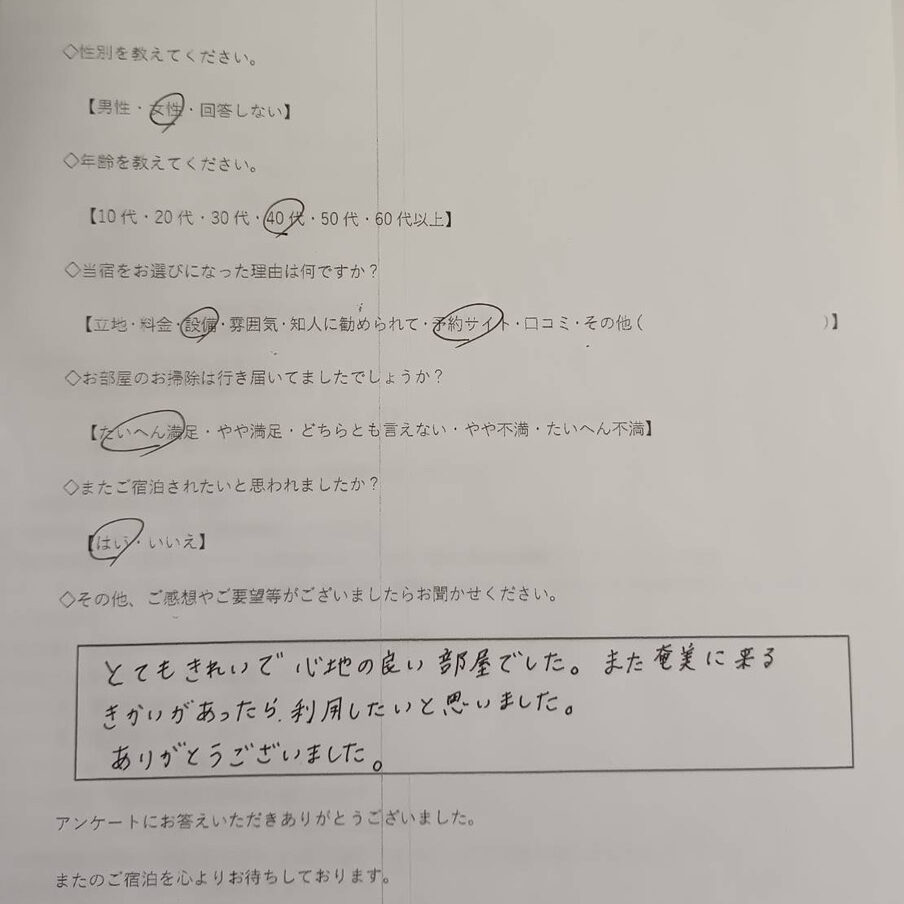 ◇性別を教えてください。
【男性・女性・回答しない】
◇年齢を教えてください。
【10代・20代・30代・40代・50代・60代以上】
◇当宿をお選びになった理由は何ですか？
【立地・料金・設備・雰囲気・知人に勧められて・予約サイト・口コミ・その他（　　　　　　　　　　）】
◇お部屋のお掃除は行き届いてましたでしょうか？
【たいへん満足・やや満足・どちらとも言えない・やや不満・たいへん不満】
◇またご宿泊されたいと思われましたか？
【はい・いいえ】
◇その他、ご感想やご要望等がございましたらお聞かせください。
とてもきれいで心地の良い部屋でした。また奄美に来る
きかいがあったら、利用したいと思いました。
ありがとうございました。
アンケートにお答えいただきありがとうございました。
またのご宿泊を心よりお待ちしております。